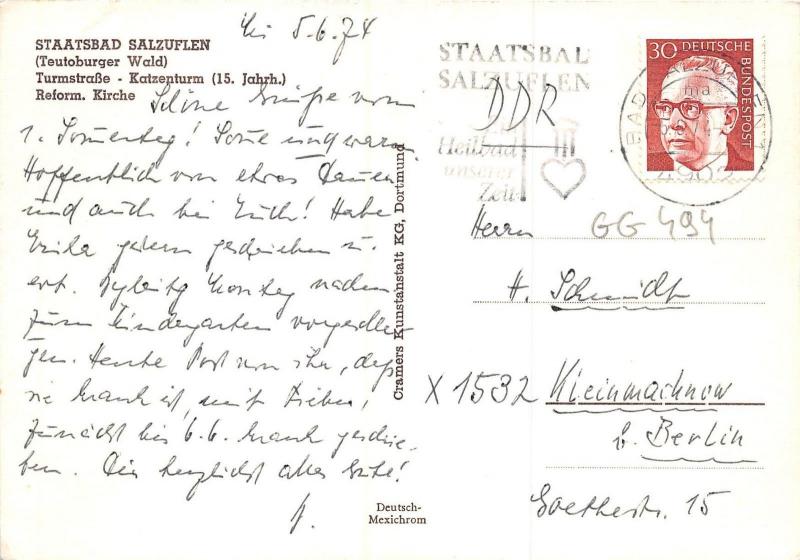 Mi 5.6.74
STAATSBAD SALZUFLEN
(Teutoburger Wald)
Turmstraße - Katzenturm (15. Jahrh.)
Reform. Kirche
Schöne Grüße vom
1. Sonnentag! Sonne und warm.
Hoffentlich von etwas Dauer
und auch bei Euch! Habe
gestern geschrieben u.
Montag nachm.
zum Kindergarten
Heute Post von ihr, daß
sie krank ist, mit Fieber,
zunächst bis 6.6. krank geschrie-
ben. Dir herzlichst alles Gute!
Cramers Kunstanstalt KG, Dortmund
Deutsch-
Mexichrom
STAATSBAD
SALZUFLEN
DDR
Heilbad
unserer
Zeit
30 DEUTSCHE
BUNDESPOST
BAD SALZUFLEN 1
ma
4902
GG 494
Herrn
H. Schmidt
X 1532 Kleinmachnow
b. Berlin
Goethestr. 15